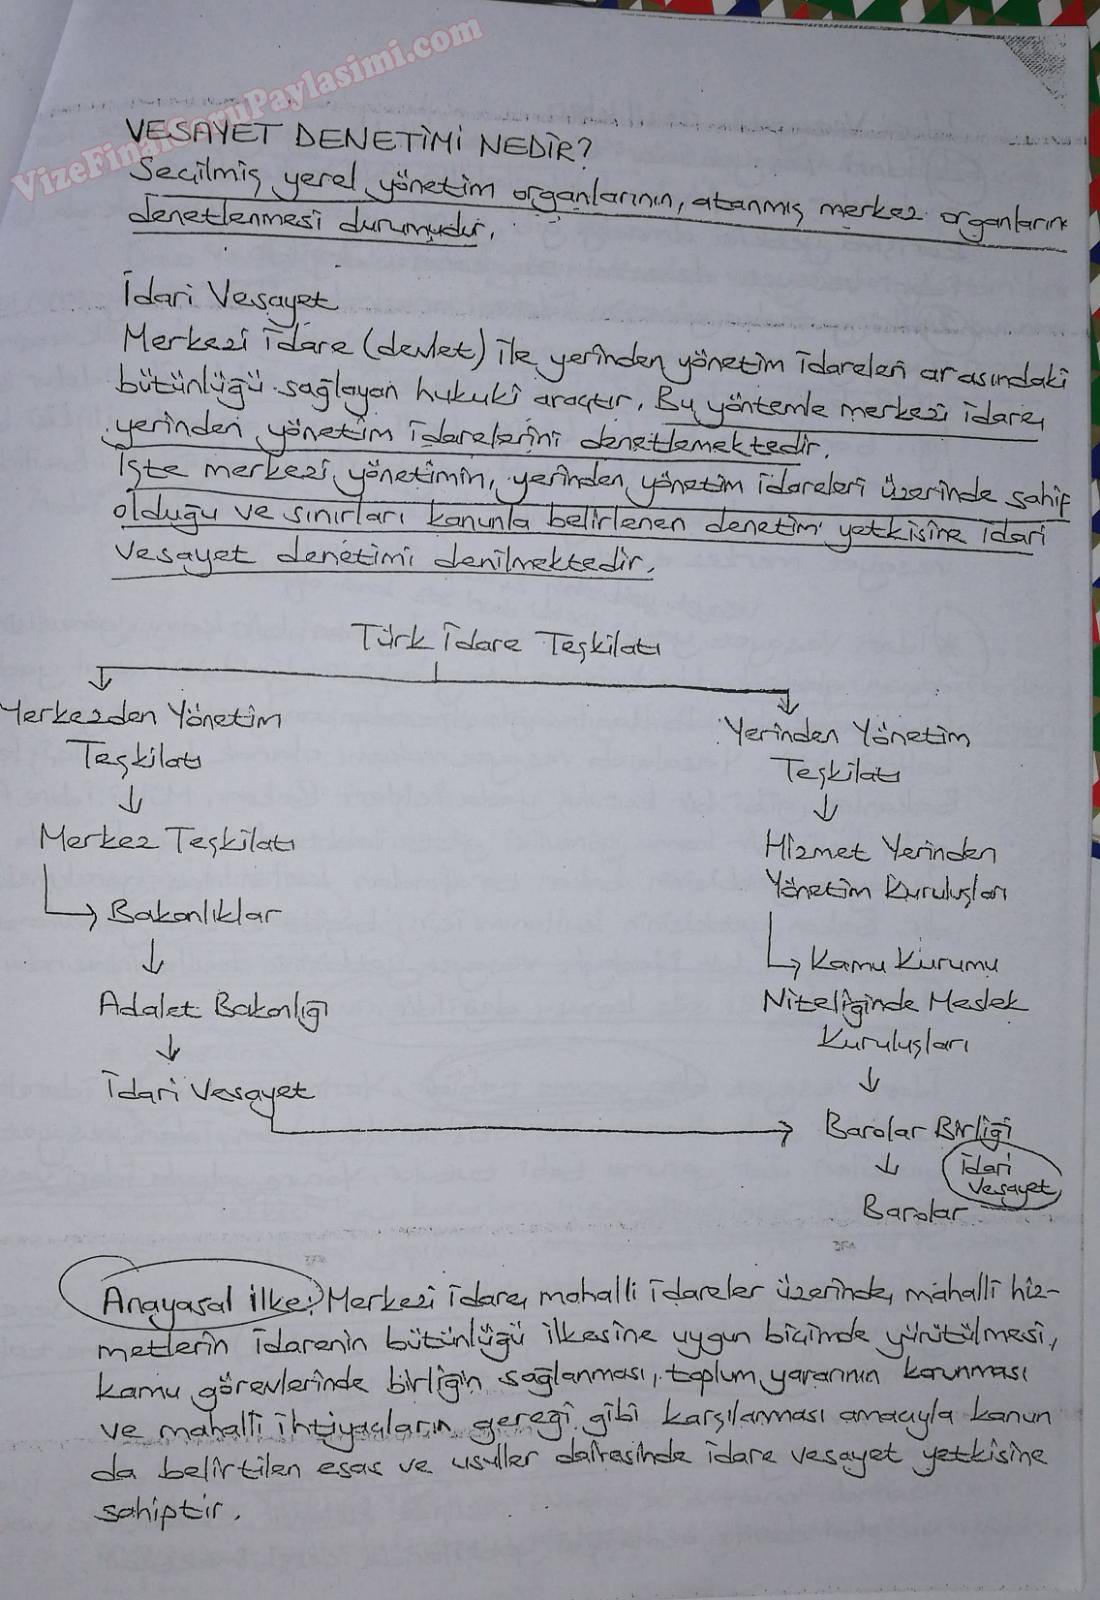 VizeFinalSoruPaylasimi.com
VESAYET DENETİMİ NEDİR?
Seçilmiş yerel yönetim organlarının, atanmış merkez organların
denetlenmesi durumudur.
İdari Vesayet
Merkezi idare (devlet) ile yerinden yönetim idareleri arasındaki
bütünlüğü sağlayan hukuki araçtır. Bu yöntemle merkezi idare,
yerinden yönetim idarelerini denetlemektedir.
İşte merkezi yönetimin, yerinden yönetim idareleri üzerinde sahip
olduğu ve sınırları kanunla belirlenen denetim yetkisine idari
vesayet denetimi denilmektedir.
Türk İdare Teşkilatı
Merkezden Yönetim
Teşkilatı
Merkez Teşkilatı
Bakanlıklar
Adalet Bakanlığı
İdari Vesayet
Yerinden Yönetim
Teşkilatı
Hizmet Yerinden
Yönetim Kuruluşları
Kamu Kurumu
Niteliğinde Meslek
Kuruluşları
Barolar Birliği
İdari
Vesayet
Barolar
Anayasal İlke: Merkezi idare, mahalli idareler üzerinde, mahalli hiz-
metlerin idarenin bütünlüğü ilkesine uygun biçimde yürütülmesi,
kamu görevlerinde birliğin sağlanması, toplum yararının korunması
ve mahalli ihtiyaçların gereği gibi karşılanması amacıyla kanun
da belirtilen esas ve usuller dairesinde idare vesayet yetkisine
sahiptir.